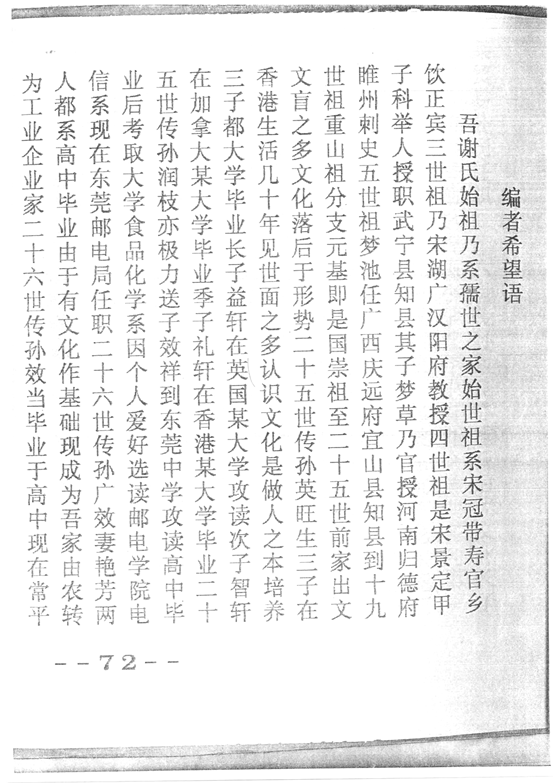 编者希望语
吾谢氏始祖乃系孺世之家始世祖系宋冠带寿官乡
饮正宾三世祖乃宋湖广汉阳府教授四世祖是宋景定甲
子科举人授职武宁县知县其子梦草乃官授河南归德府
睢州刺史五世祖梦池任广西庆远府宜山县知县到十九
世祖重山祖分支元基即是国崇祖至二十五世前家出文
文盲之多文化落后于形势二十五世传孙英旺生三子在
香港生活几十年见世面之多认识文化是做人之本培养
三子都大学毕业长子益轩在英国某大学攻读次子智轩
在加拿大某大学毕业季子礼轩在香港某大学毕业二十
五世传孙润枝亦极力送子效祥到东莞中学攻读高中毕
业后考取大学食品化学系因个人爱好选读邮电学院电
信系现在东莞邮电局任职二十六世传孙广效妻艳芳两
人都系高中毕业由于有文化作基础现成为吾家由农转
为工业企业家二十六世传孙效当毕业于高中现在常平
--72--